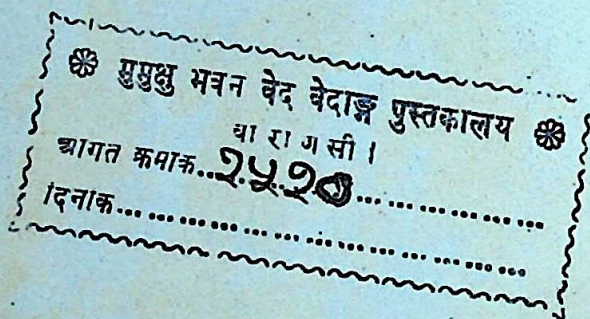 मुमुक्षु भवन वेद वेदाङ्ग पुस्तकालय
वा रा ण सी ।
आगत क्रमाक...२५१७...
दिनांक...